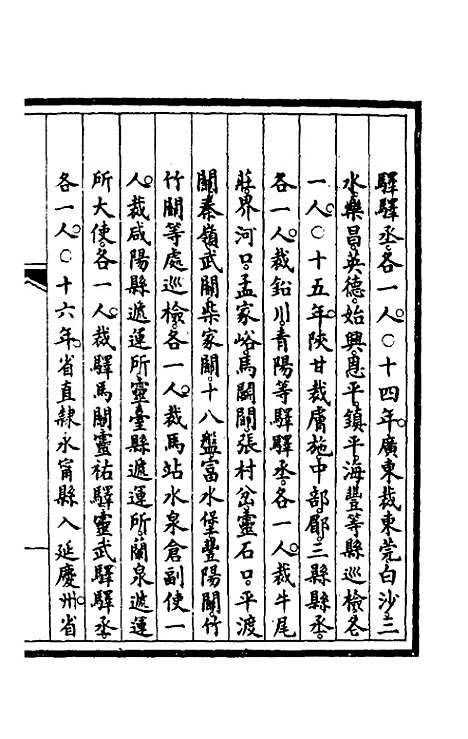 驛驛丞。各一人。○十四年。廣東裁東莞白沙。三
水。樂昌。英德。始興。恩平。鎮平。海豐等縣巡檢。各
一人。○十五年。陝甘裁膚施。中部。鄜。三縣縣丞。
各一人。裁鉛川。青陽等驛驛丞。各一人。裁牛尾
莊。界河口。孟家峪。馬闌關。張村岔。靈石口。平渡
關。秦嶺。武關。欒家關。十八盤。富水堡。豐陽關。竹
竹關等處巡檢。各一人。裁馬站水泉倉副使一
人。裁咸陽縣遞運所。靈臺縣遞運所。蘭泉遞運
所大使。各一人。裁驛馬關。靈祐驛。靈武驛驛丞。
各一人。○十六年。省直隸永甯縣入延慶州。省